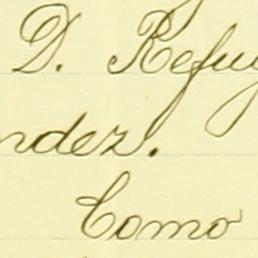 D. Refug
ndez.
Como